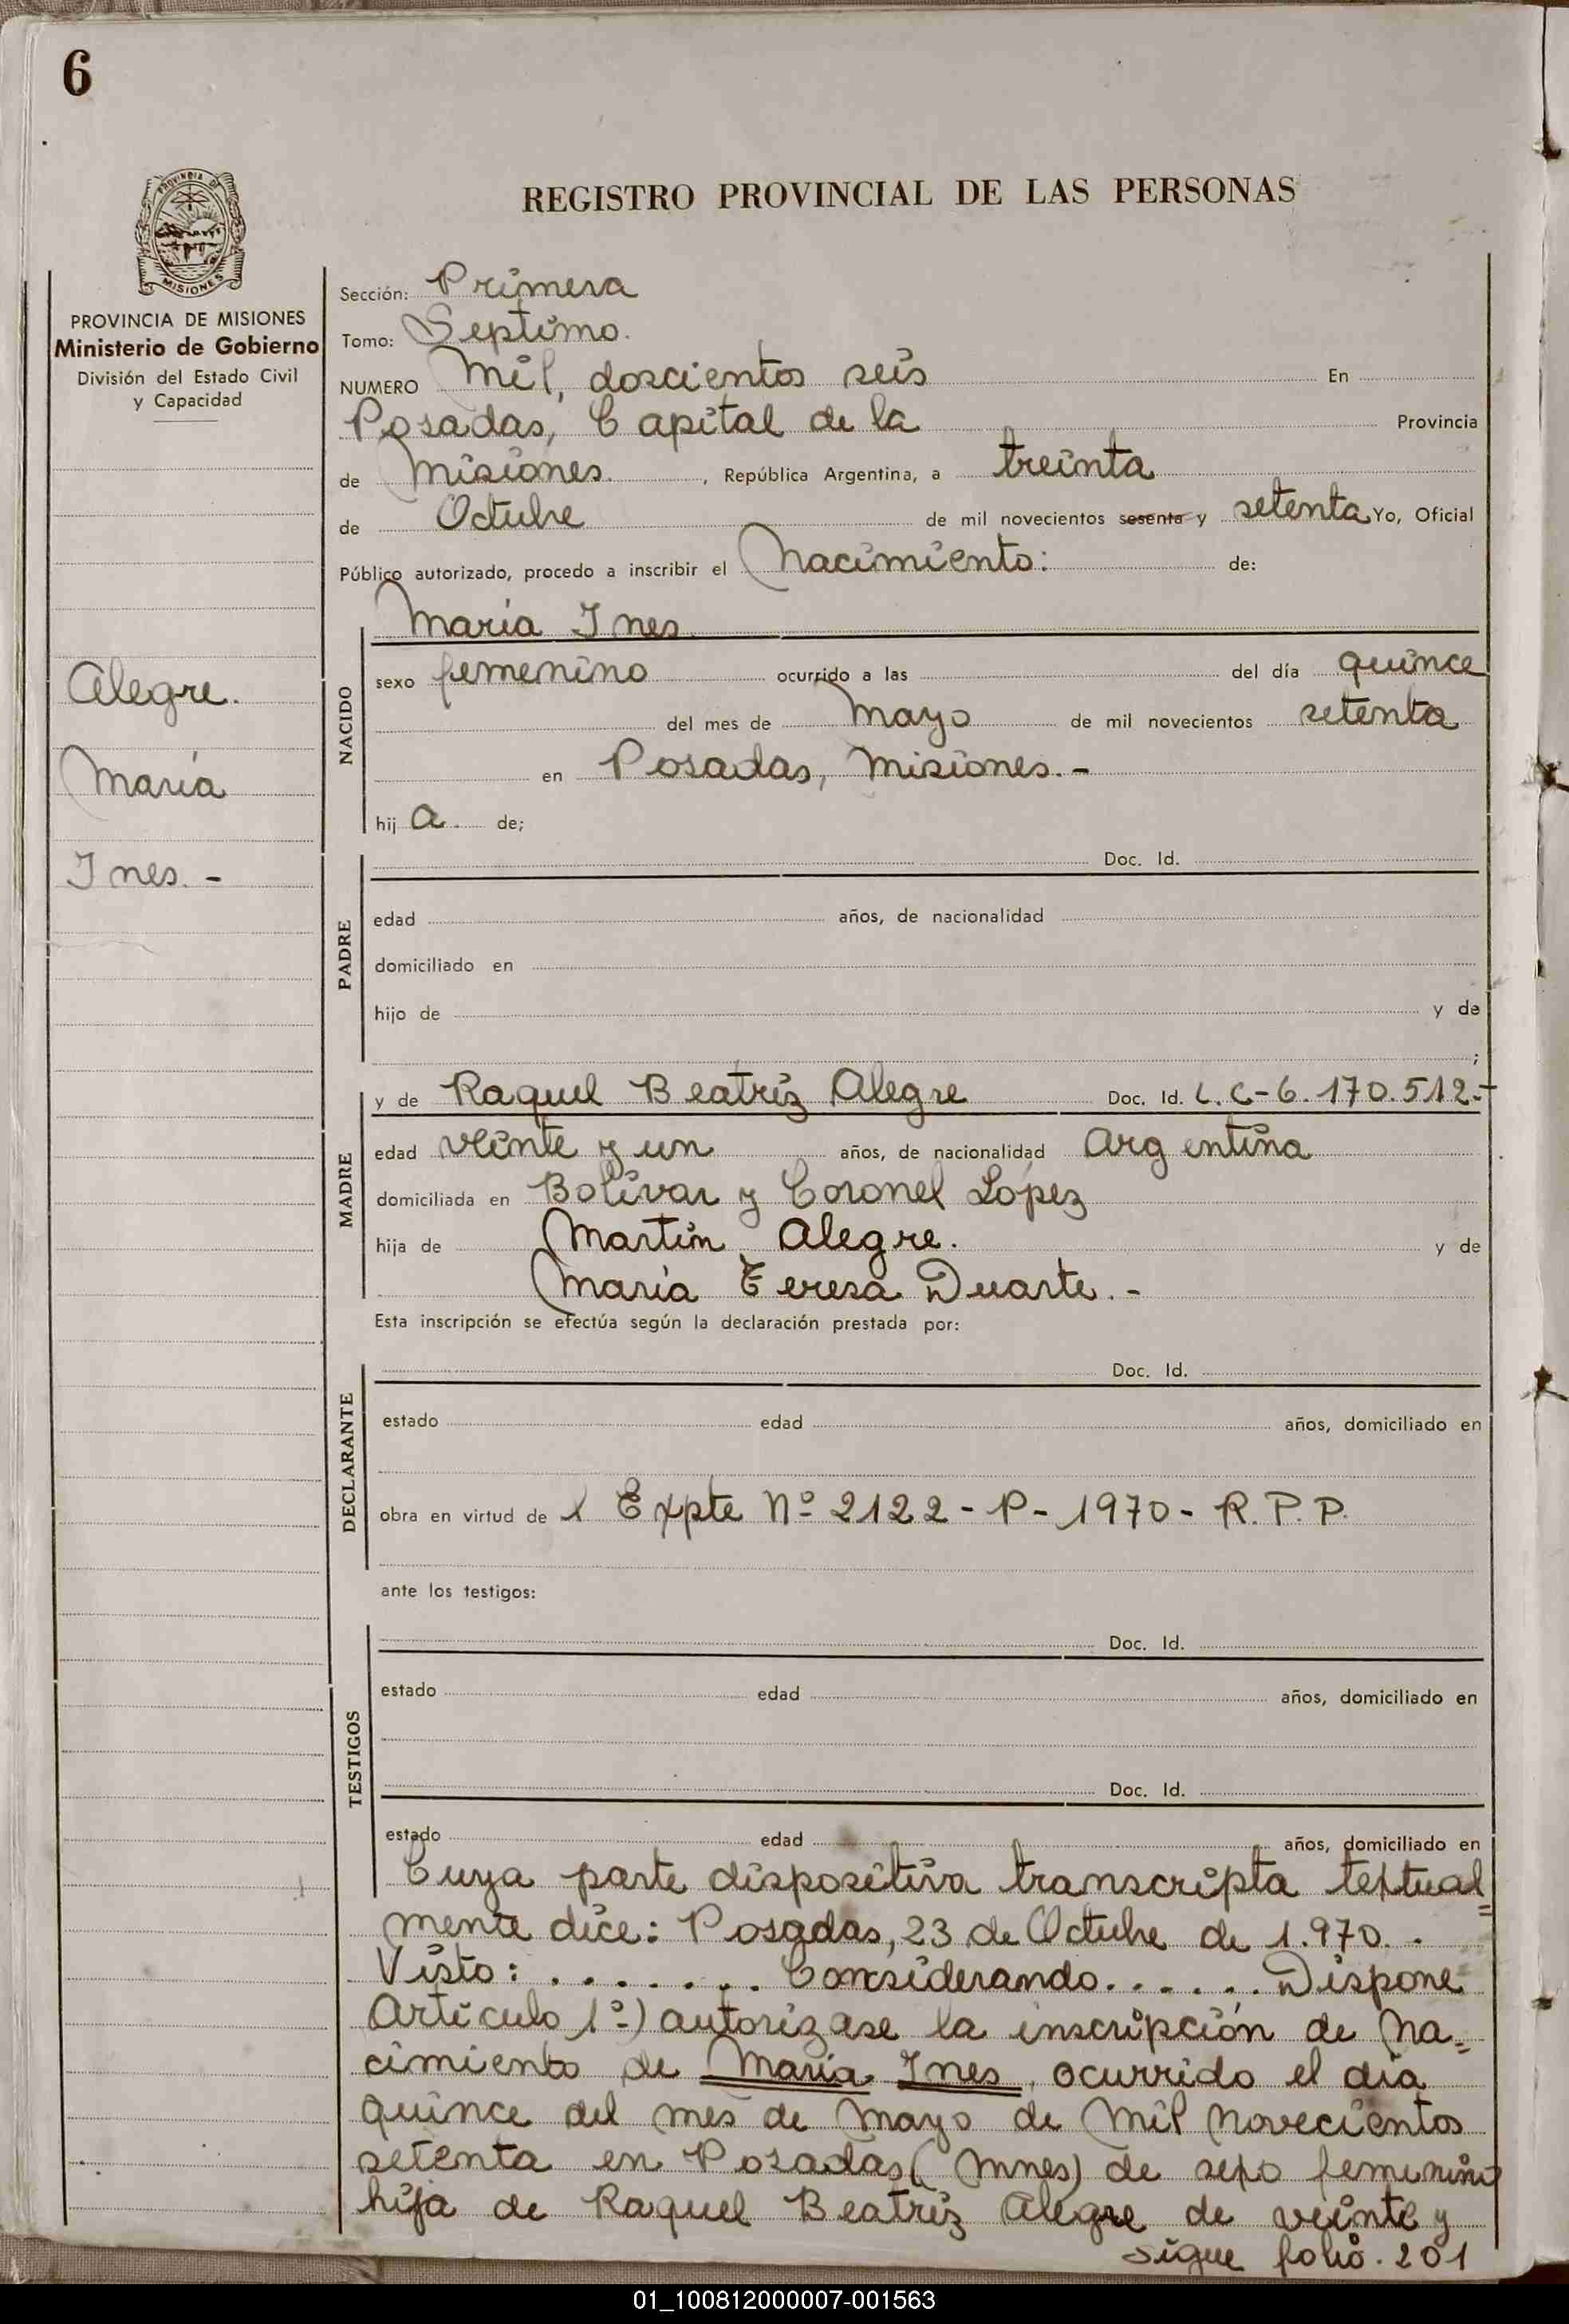 6
PROVINCIA DE
MISIONES
REGISTRO PROVINCIAL DE LAS PERSONAS
PROVINCIA DE MISIONES
Ministerio de Gobierno
División del Estado Civil
y Capacidad
Alegre.
María
Ines. -
Sección: Primera
Tomo: Septimo.
NUMERO Mil, doscientos seis En
Posadas, Capital de la Provincia
de Misiones. , República Argentina, a treinta
de Octubre de mil novecientos sesenta y setenta Yo, Oficial
Público autorizado, procedo a inscribir el Nacimiento: de:
María Ines
NACIDO
sexo femenino ocurrido a las del día quince
del mes de Mayo de mil novecientos setenta
en Posadas, Misiones. -
hij a. de;
Doc. Id.
PADRE
edad años, de nacionalidad
domiciliado en
hijo de y de
;
y de Raquel Beatriz Alegre Doc. Id. L.C-6.170.512.-
MADRE
edad veinte y un años, de nacionalidad Argentina
domiciliada en Bolívar y Coronel López
hija de Martín Alegre. y de
María Teresa Duarte. -
Esta inscripción se efectúa según la declaración prestada por:
Doc. Id.
DECLARANTE
estado edad años, domiciliado en
obra en virtud de l Expte Nº 2122 - P - 1970 - R. P. P.
ante los testigos:
Doc. Id.
TESTIGOS
estado edad años, domiciliado en
Doc. Id.
estado edad años, domiciliado en
Cuya parte dispositiva transcripta textual=
mente dice: Posadas, 23 de Octubre de 1.970. .
Visto: . . . . . . . Considerando. . . . . . Dispone
Artículo 1º) autorizase la inscripción de Na=
cimiento de María Ines, ocurrido el día
quince del mes de Mayo de Mil Novecientos
setenta en Posadas (Mnes) de sexo femenino
hija de Raquel Beatriz Alegre de veinte y
sigue folio. 201
01_100812000007-001563